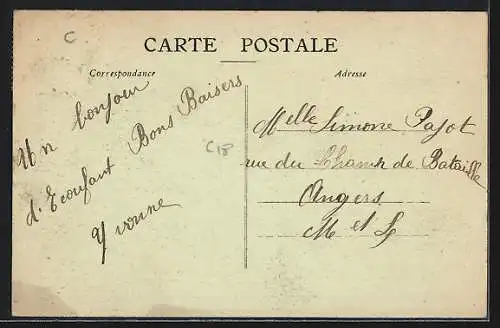 C
CARTE POSTALE
Correspondance
Adresse
Un bonjour
d'Ecouflant Bons Baisers
Yvonne
C18
Melle Simone Pajot
rue du Champ de Bataille
Angers
M et L